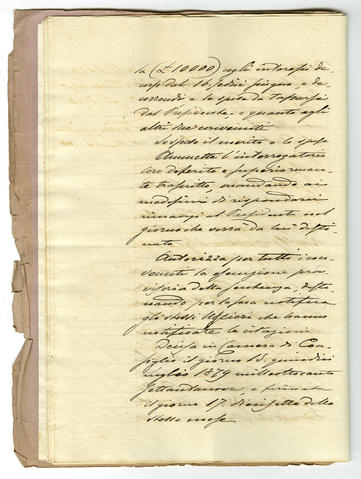 la (£ 10000) cogli interessi de-
corsi dal 16 sedici giugno, e de-
correndi e le spese da tassarsi
dal Presidente, e quanto agli
altri due convenuti
Sospeso il merito e le spese
Ammette l'interrogatorio
loro deferito e superiormen-
te trascritto, mandando ai
medesimi di rispondervi
innanzi al Presidente nel
giorno che verrà da lui desti-
nato
Autorizza per tutti i con-
venuti la esecuzione prov-
visoria della sentenza, desti-
nando per la sua notifica
gli stessi Uscieri che hanno
notificate le citazioni
Decisa in Camera di Con-
siglio il giorno 15 quindici
luglio 1879 milleottocento
settantanove, e firmata
il giorno 17 diciassette dello
stesso mese